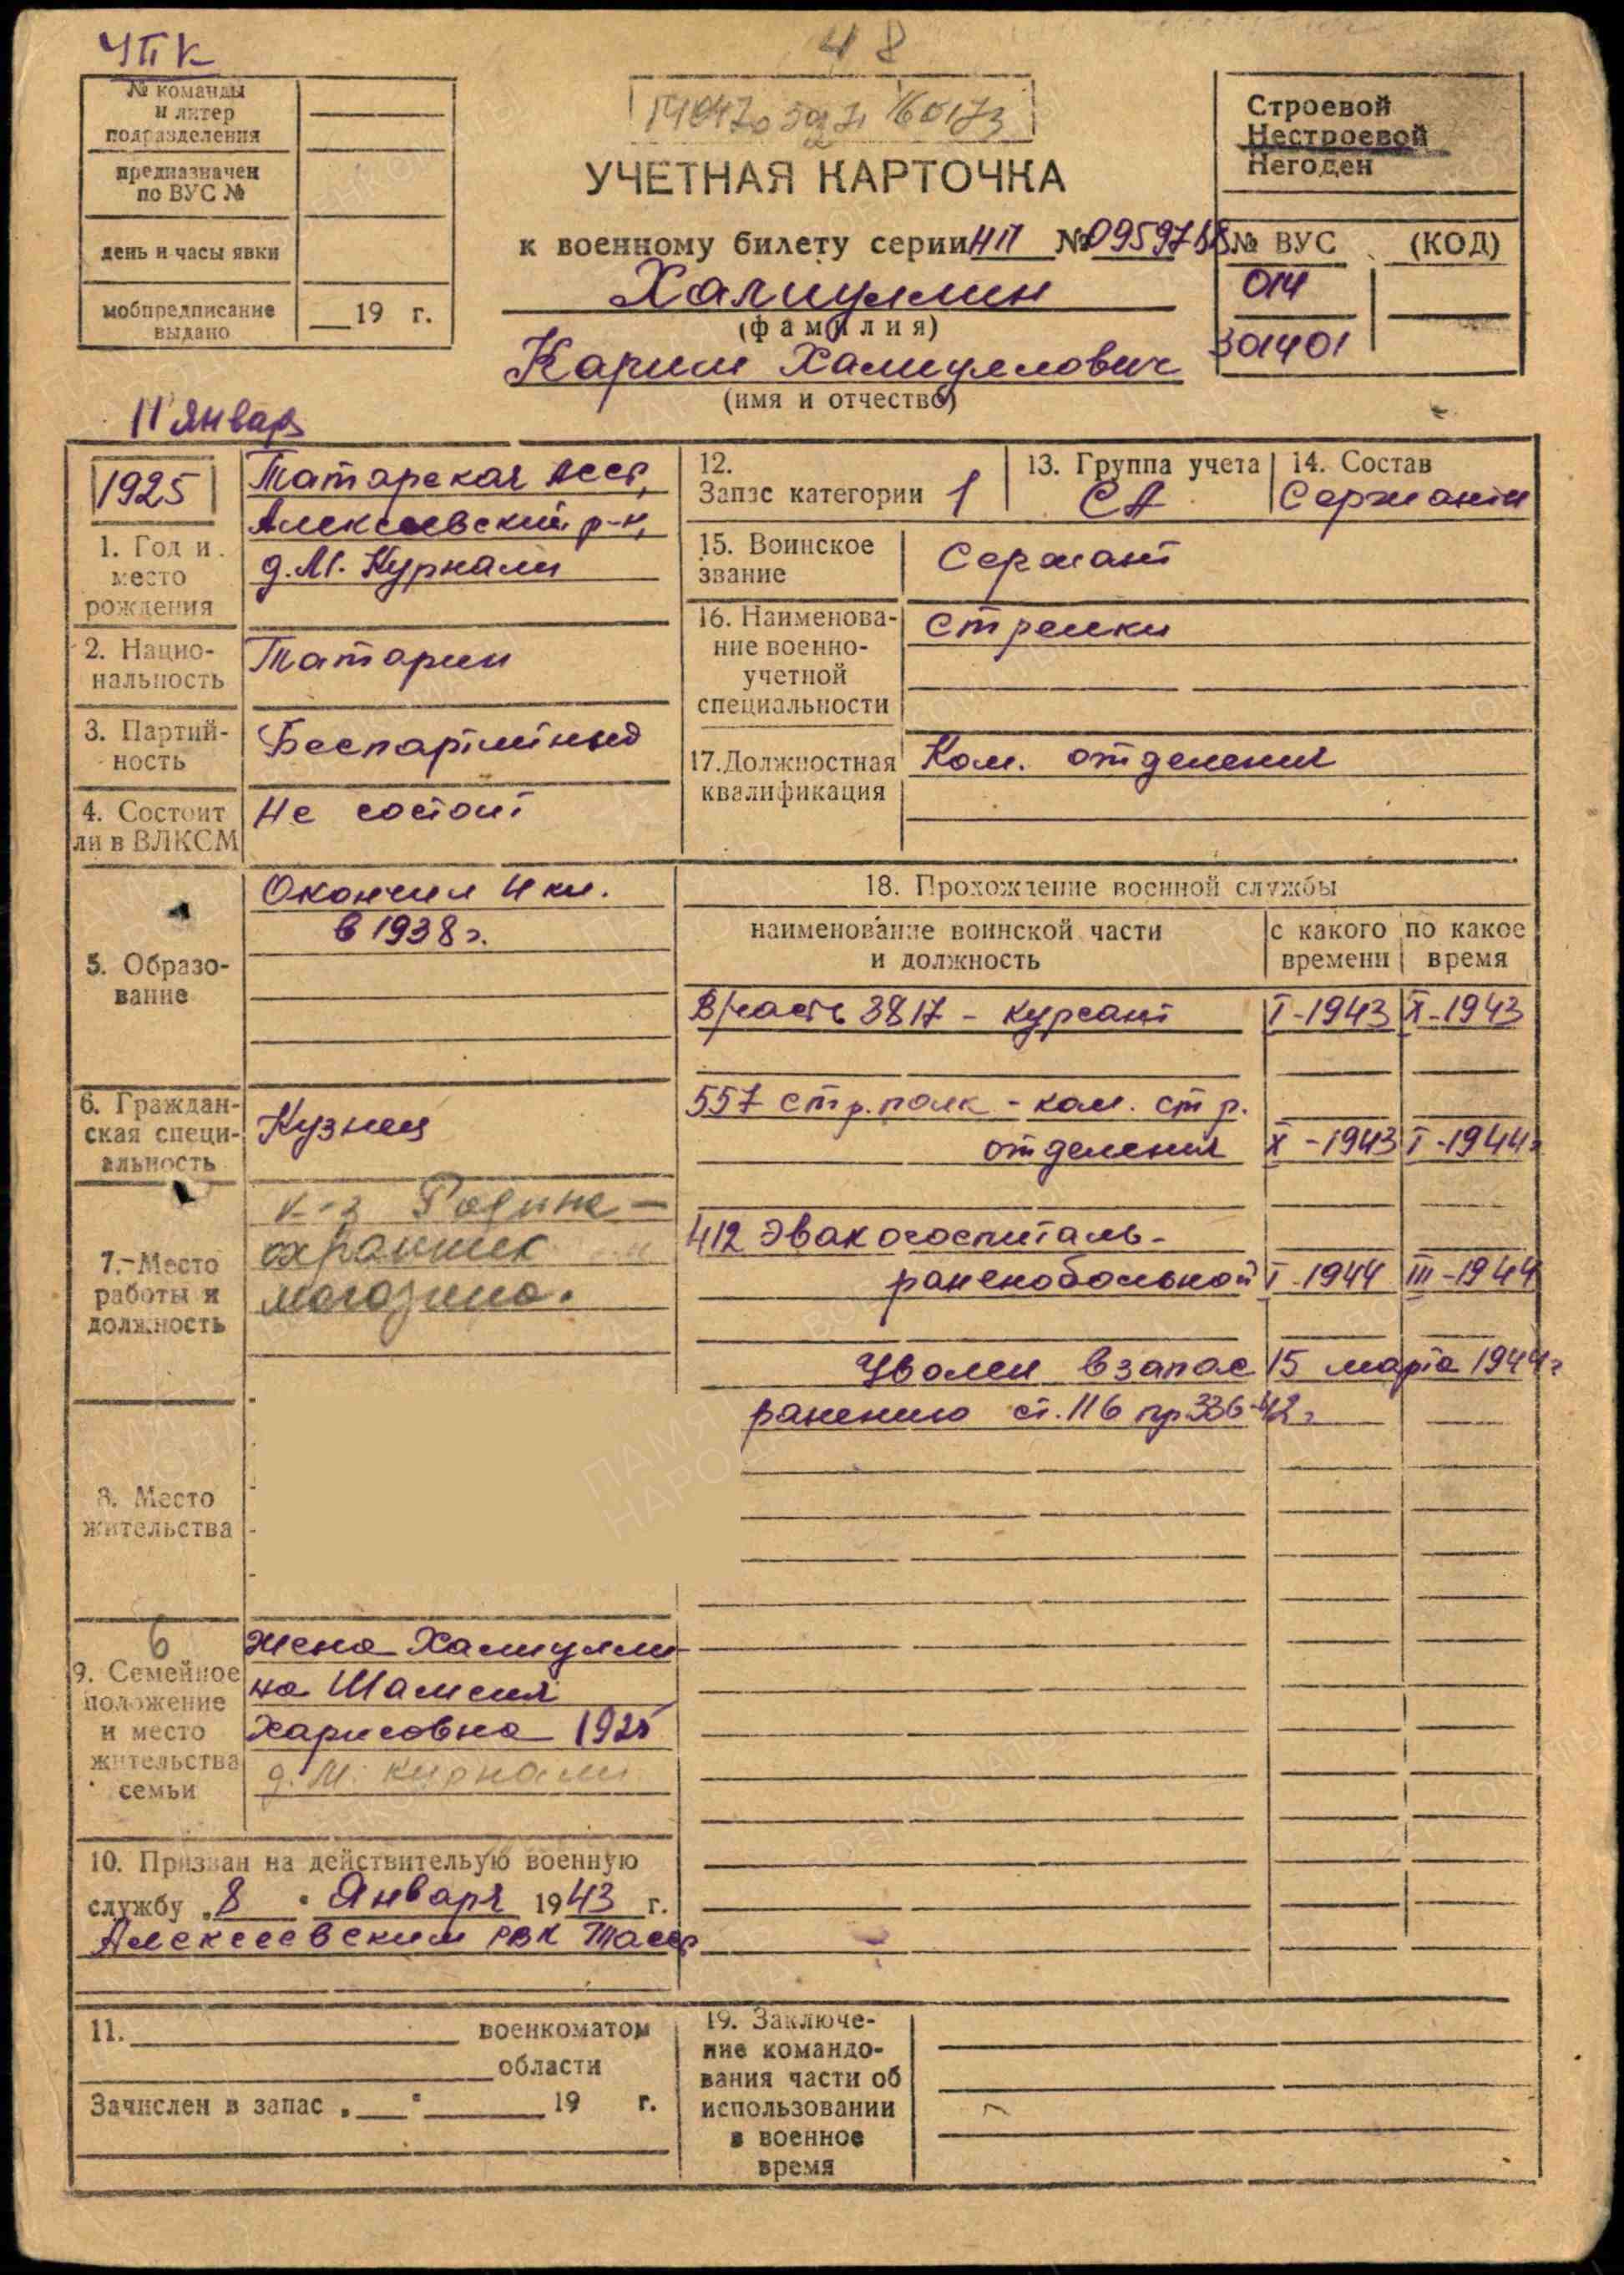 УПК
48
№ команды
и литер
подразделения
предназначен
по ВУС №
день и часы явки
мобпредписание
выдано
19 г.
УЧЕТНАЯ КАРТОЧКА
к военному билету серии НП №
Халиуллин
(фамилия)
Карим Халиуллович
(имя и отчество)
Строевой
Нестроевой
Негоден
№ ВУС (КОД)
014
301401
11 Января
1925
1. Год и
место
рождения
Татарская АССР,
Алексеевский р-н,
д. М. Куркали
2. Нацио-
нальность
Татарин
3. Партий-
ность
Беспартийный
4. Состоит
ли в ВЛКСМ
Не состоит
5. Образо-
вание
Окончил 4 кл.
в 1938 г.
6. Граждан-
ская специ-
альность
Кузнец
7. Место
работы и
должность
к-з Родина —
охранник
магазина.
8. Место
жительства
6
9. Семейное
положение
и место
жительства
семьи
Жена Халиулли-
на Шамсия
Харисовна 1925
д. М. Куркали
10. Призван на действительую военную
службу „8 " Января 1943 г.
Алексеевским РВК ТАССР
11. военкоматом
области
Зачислен в запас „ " 19 г.
12.
Запас категории 1
13. Группа учета
СА
14. Состав
Сержанты
15. Воинское
звание
Сержант
16. Наименова-
ние военно-
учетной
специальности
Стрелки
17. Должностная
квалификация
Ком. отделения
18. Прохождение военной службы
наименование воинской части
и должность
с какого
времени
по какое
время
В/часть 3817 - курсант I-1943 X-1943
557 стр. полк - ком. стр.
отделения X-1943 I-1944 г
412 Эвакогоспиталь -
раненобольной I-1944 III-1944
Уволен в запас 15 марта 1944 г
ранению ст. 116 пр 336-42 г
19. Заключе-
ние командо-
вания части об
использовании
в военное
время
ПАМЯТЬ
НАРОДА